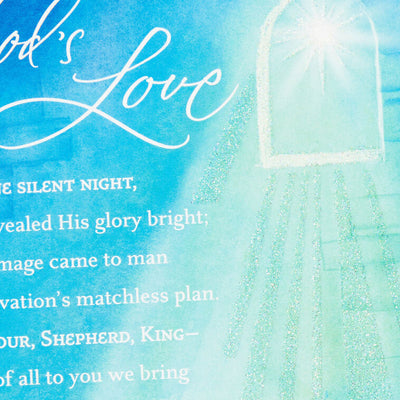 od's
Love
NE SILENT NIGHT,
vealed His glory bright;
mage came to man
vation's matchless plan.
OUR, SHEPHERD, KING—
of all to you we bring